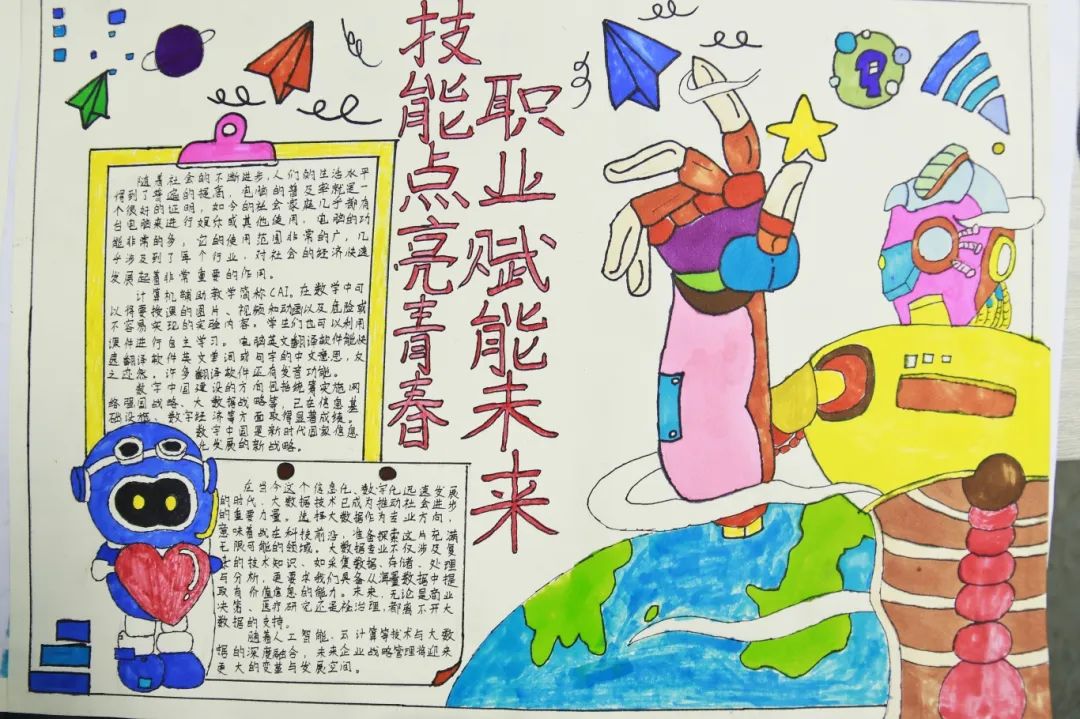 技能点亮青春
职业赋能未来
随着社会的不断进步,人们的生活水平
得到了普遍的提高,电脑的普及率就是一
个很好的证明,如今的社会家庭几乎都有
台电脑来进行娱乐或其他使用,电脑的功
能非常的多,它的使用范围非常的广,几
乎涉及到了每个行业,对社会的经济快速
发展起着非常重要的作用。
计算机辅助教学简称CAI。在教学中可
以将要授课的图片、视频和动画以及危险或
不容易实现的实验内容。学生们也可以利用
课件进行自主学习。电脑英文翻译软件能快
速翻译软件英文单词或句字的中文意思,反
之亦然。许多翻译软件还有发音功能。
数字中国建设的方向包括统筹实施网
络强国战略、大数据战略等,已在信息基
础设施、数字经济等方面取得显著成绩。
数字中国是新时代国家信息
化发展的新战略。
在当今这个信息化、数字化迅速发展
的时代,大数据技术已成为推动社会进步
的重要力量。选择大数据作为专业方向,
意味着战在科技前沿,准备探索这片充满
无限可能的领域。大数据专业不仅涉及复
杂的技术知识、如采集数据、存储、处理
与分析,更要求我们具备从海量数据中提
取有价值信息的能力。未来,无论是商业
决策、医疗研究还是治理,都离不开大
数据的支持。
随着人工智能、云计算等技术与大数
据的深度融合,未来企业战略管理将迎来
更大的变革与发展空间。